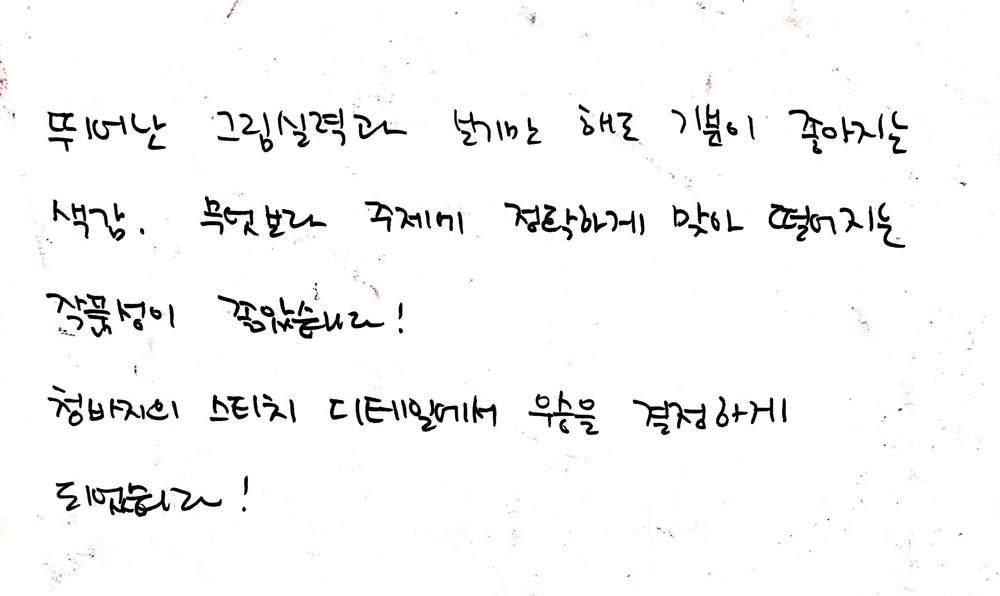 뛰어난 그림실력과 보기만 해도 기분이 좋아지는
색감. 무엇보다 주제에 정확하게 맞아 떨어지는
작품성이 좋았습니다!
청바지의 스티치 디테일에서 우승을 결정하게
되었습니다!